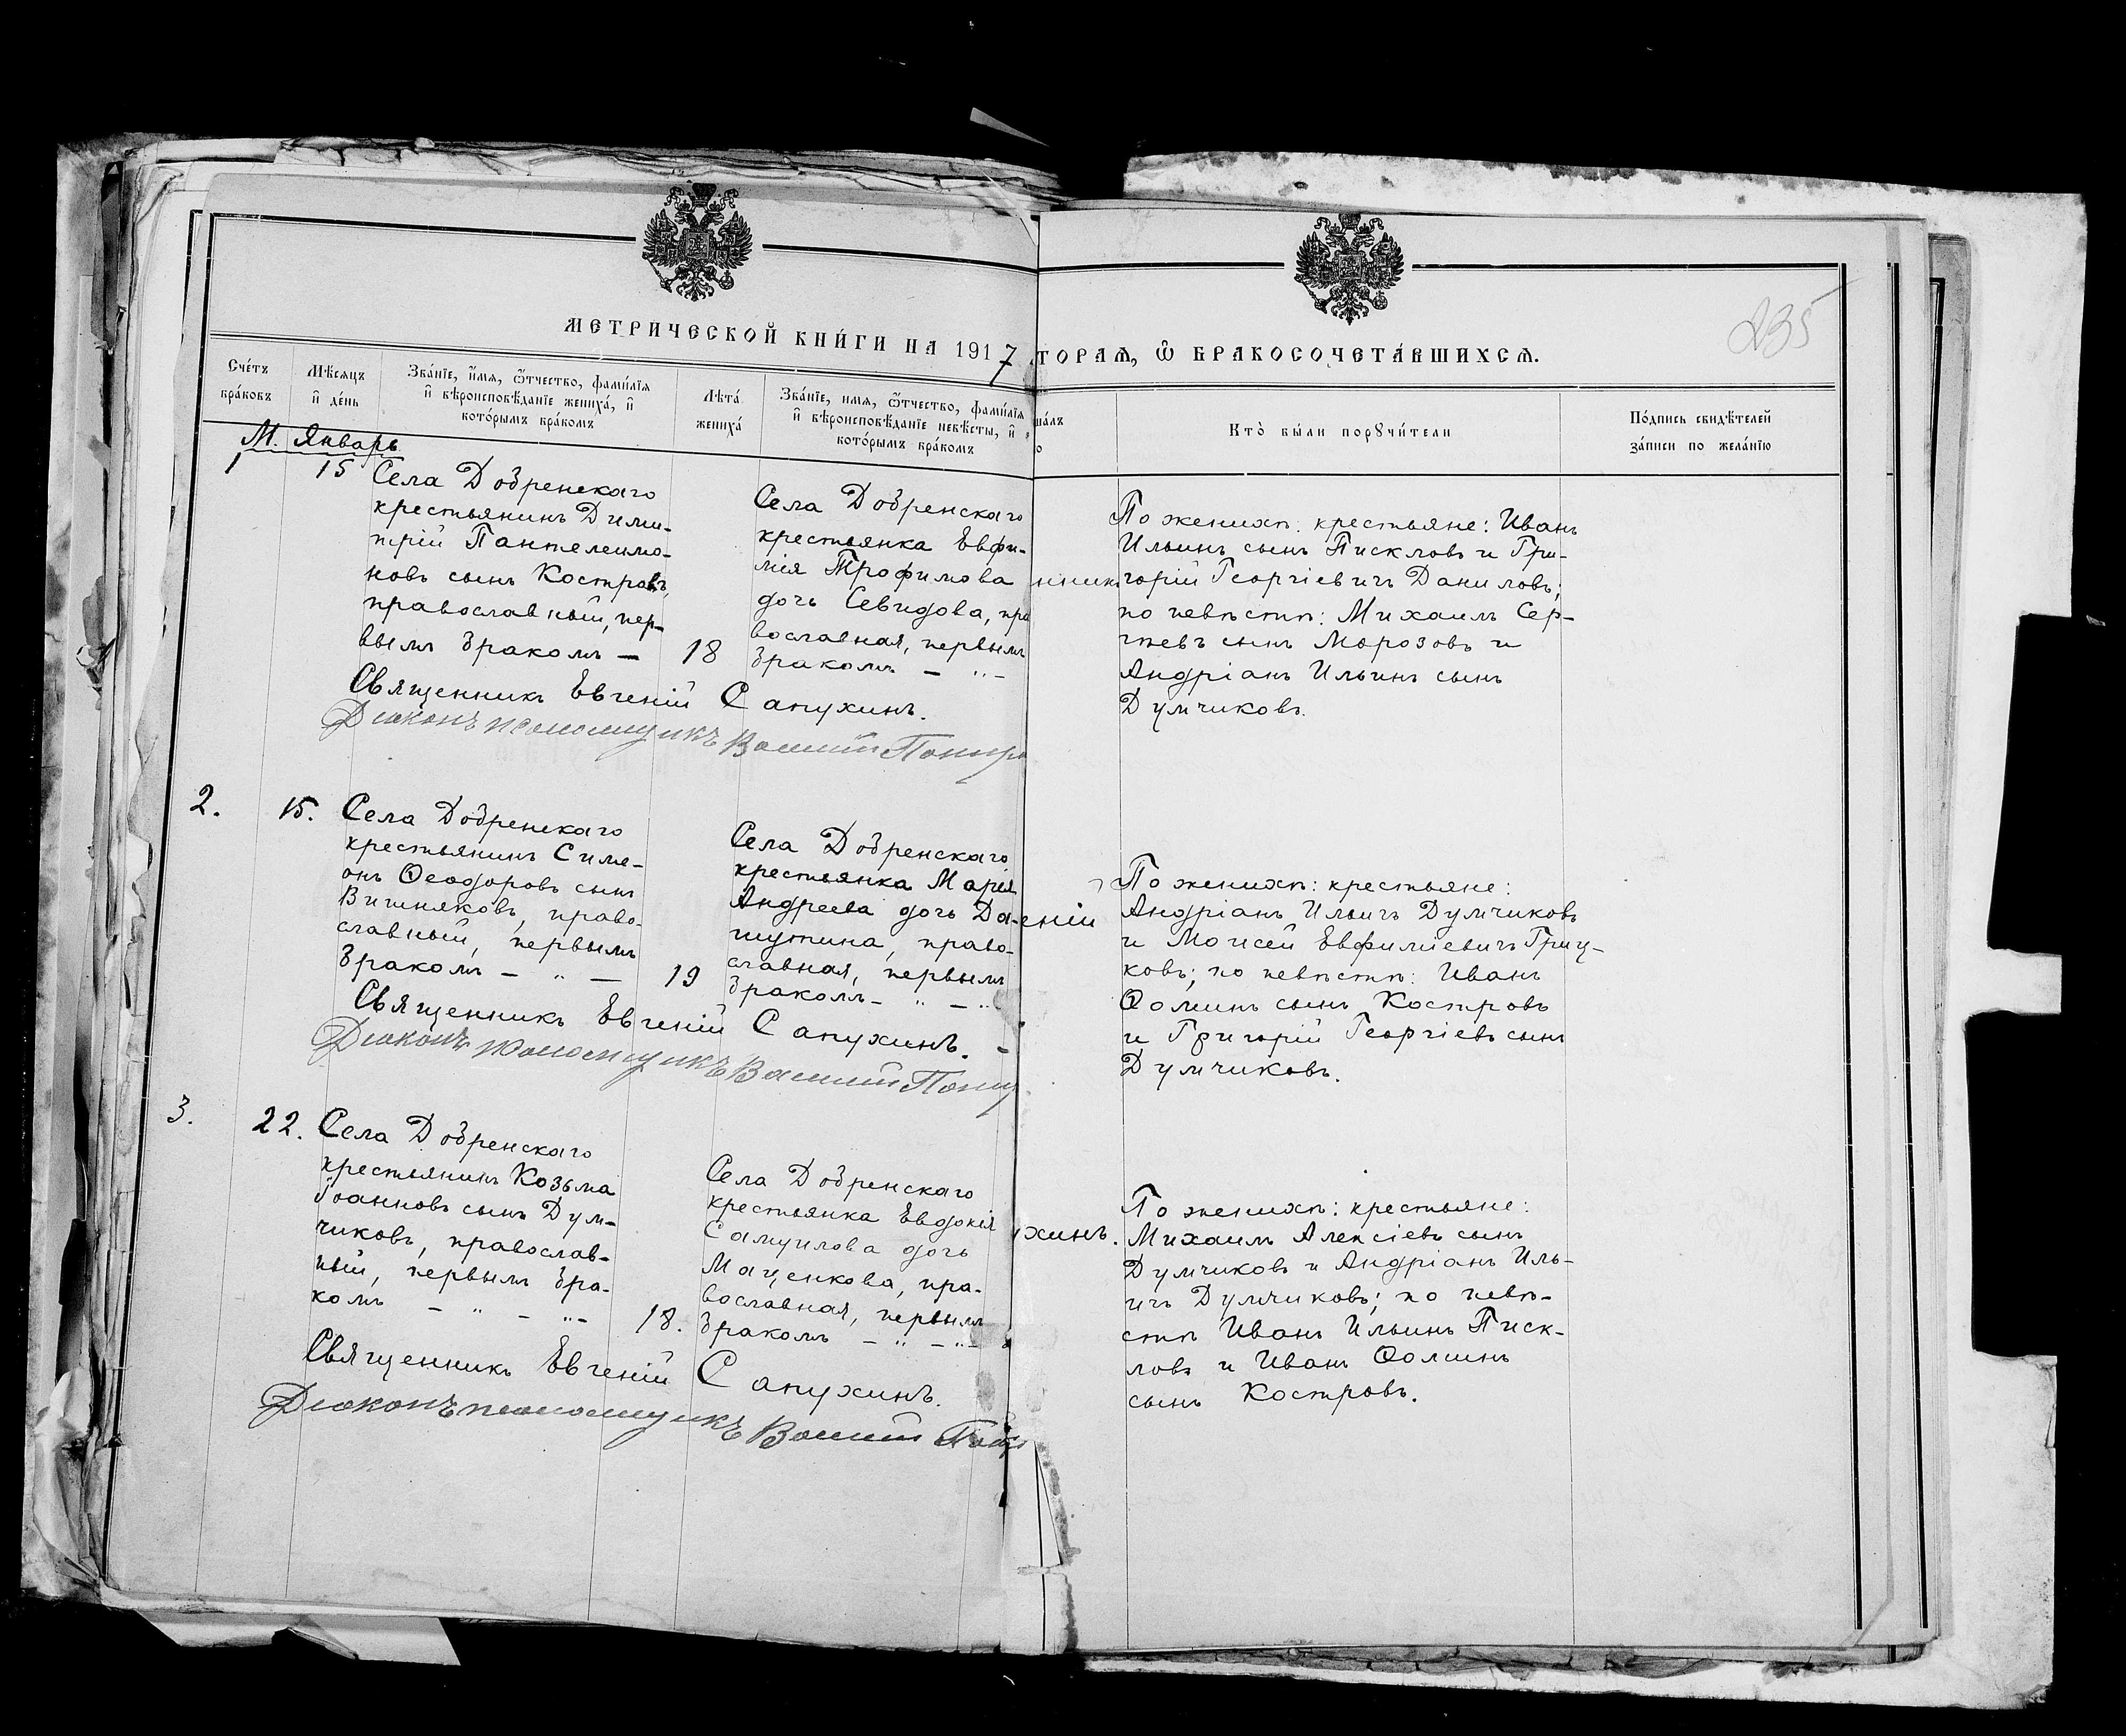 МЕТРИЧЕСКОЙ КНИ́ГИ НА 1917
ТОРАѦ, Ѿ БРАКОСОЧЕТА́ВШИХСѦ.
235
Сче́тъ
бра́ковъ
Мѣсяцъ
и҆ де́нь
Зва́нїе, и҆́мя, ѻ҆́тчество, фами́лїя
и҆ вѣроисповѣ́данїе жениха́, и҆
кото́рымъ бра́комъ
Лѣта́
жениха́
Зва́нїе, и҆́мя, ѻ҆́тчество, фами́лїя
и҆ вѣроисповѣ́данїе невѣ́сты, и҆
кото́рымъ бра́комъ
ша́лъ
о
Кто̀ бы́ли порꙋчи́тели
По́дпись свидѣ́телей
за́писи по жела́нїю
М. Январь
1
15
Села Добренскаго
крестьянинъ Дими-
трій Пантелеимо-
новъ сынъ Костровъ,
православный, пер-
вымъ бракомъ —
18
Села Добренскаго
крестьянка Евфи-
мія Трофимова
дочь Севидова, пра
вославная, первымъ
бракомъ — „ —
нникъ
По женихѣ: крестьяне: Иванъ
Ильинъ сынъ Пискловъ и Гри-
горій Георгіевичъ Даниловъ;
по невѣстѣ: Михаилъ Сер-
гѣевъ сынъ Морозовъ и
Андріанъ Ильинъ сынъ
Думчиковъ.
Священникъ Евгеній Сапухинъ.
Діаконъ псаломщикъ Василій
2.
15.
Села Добренскаго
крестьянинъ Симе-
онъ Ѳеодоровъ сынъ
Вишняковъ, право-
славный, первымъ
бракомъ — „ —
19
Села Добренскаго
крестьянка Марія
Андреева дочь Да-
шутина, право-
славная, первымъ
бракомъ — „ — „
еній
По женихѣ: крестьяне:
Андріанъ Ильичъ Думчиковъ
и Моисей Евфиміевичъ Гриц-
ковъ; по невѣстѣ: Иванъ
Ѳоминъ сынъ Костровъ
и Григорій Георгіевъ сынъ
Думчиковъ.
Священникъ Евгеній Сапухинъ. —
Діаконъ псаломщикъ Василій
3.
22.
Села Добренскаго
крестьянинъ Козьма
Іоанновъ сынъ Дум-
чиковъ, православ-
ный, первымъ бра-
комъ — „ — „ —
18.
Села Добренскаго
крестьянка Евдокія
Самуилова дочь
Маценкова, пра-
вославная, первымъ
бракомъ — „ — „ —
хинъ.
По женихѣ: крестьяне:
Михаилъ Алексіевъ сынъ
Думчиковъ и Андріанъ Иль-
ичъ Думчиковъ; по невѣ-
стѣ Иванъ Ильинъ Писк-
ловъ и Иванъ Ѳоминъ
сынъ Костровъ.
Священникъ Евгеній Сапухинъ.
Діаконъ псаломщикъ Василій